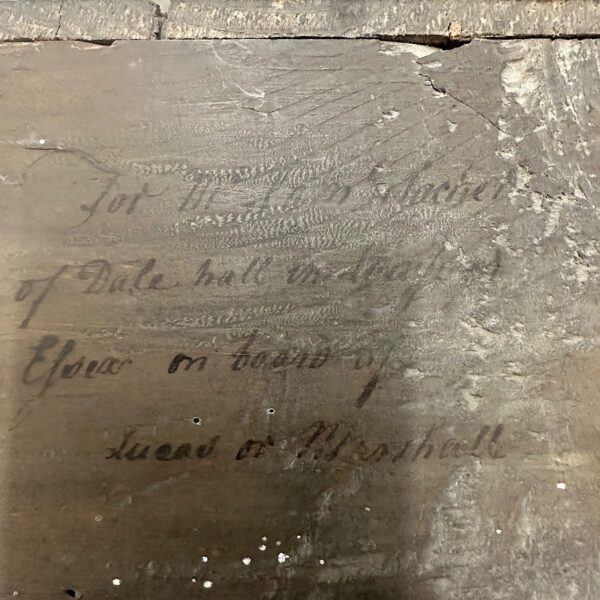 For Mr
of Dale hall in
Essex on board of
Lucas or Marshall